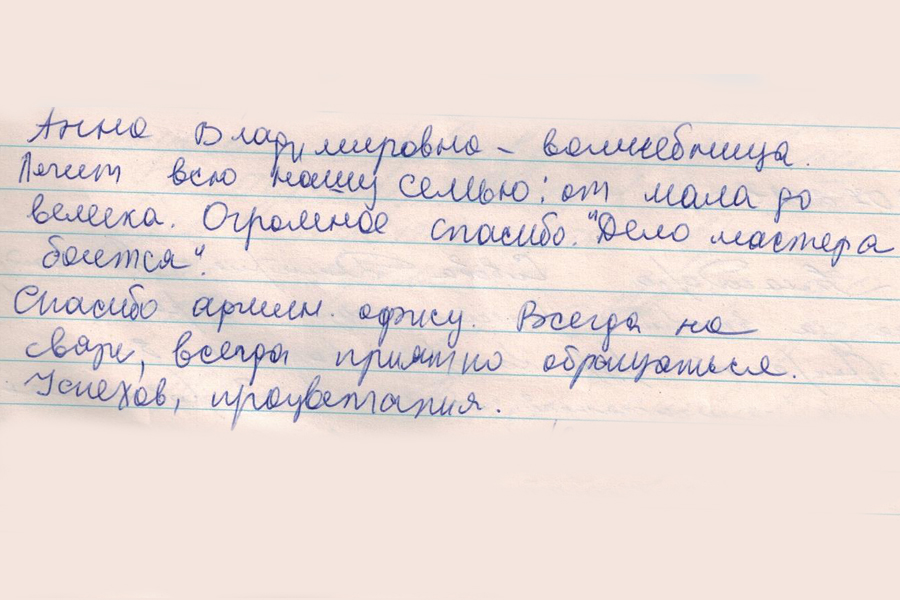 Анна Владимировна – волшебница.
Лечит всю нашу семью: от мала до
велика. Огромное спасибо. "Дело мастера
боится".
Спасибо админ. офису. Всегда на
связи, всегда приятно обращаться.
Успехов, процветания.